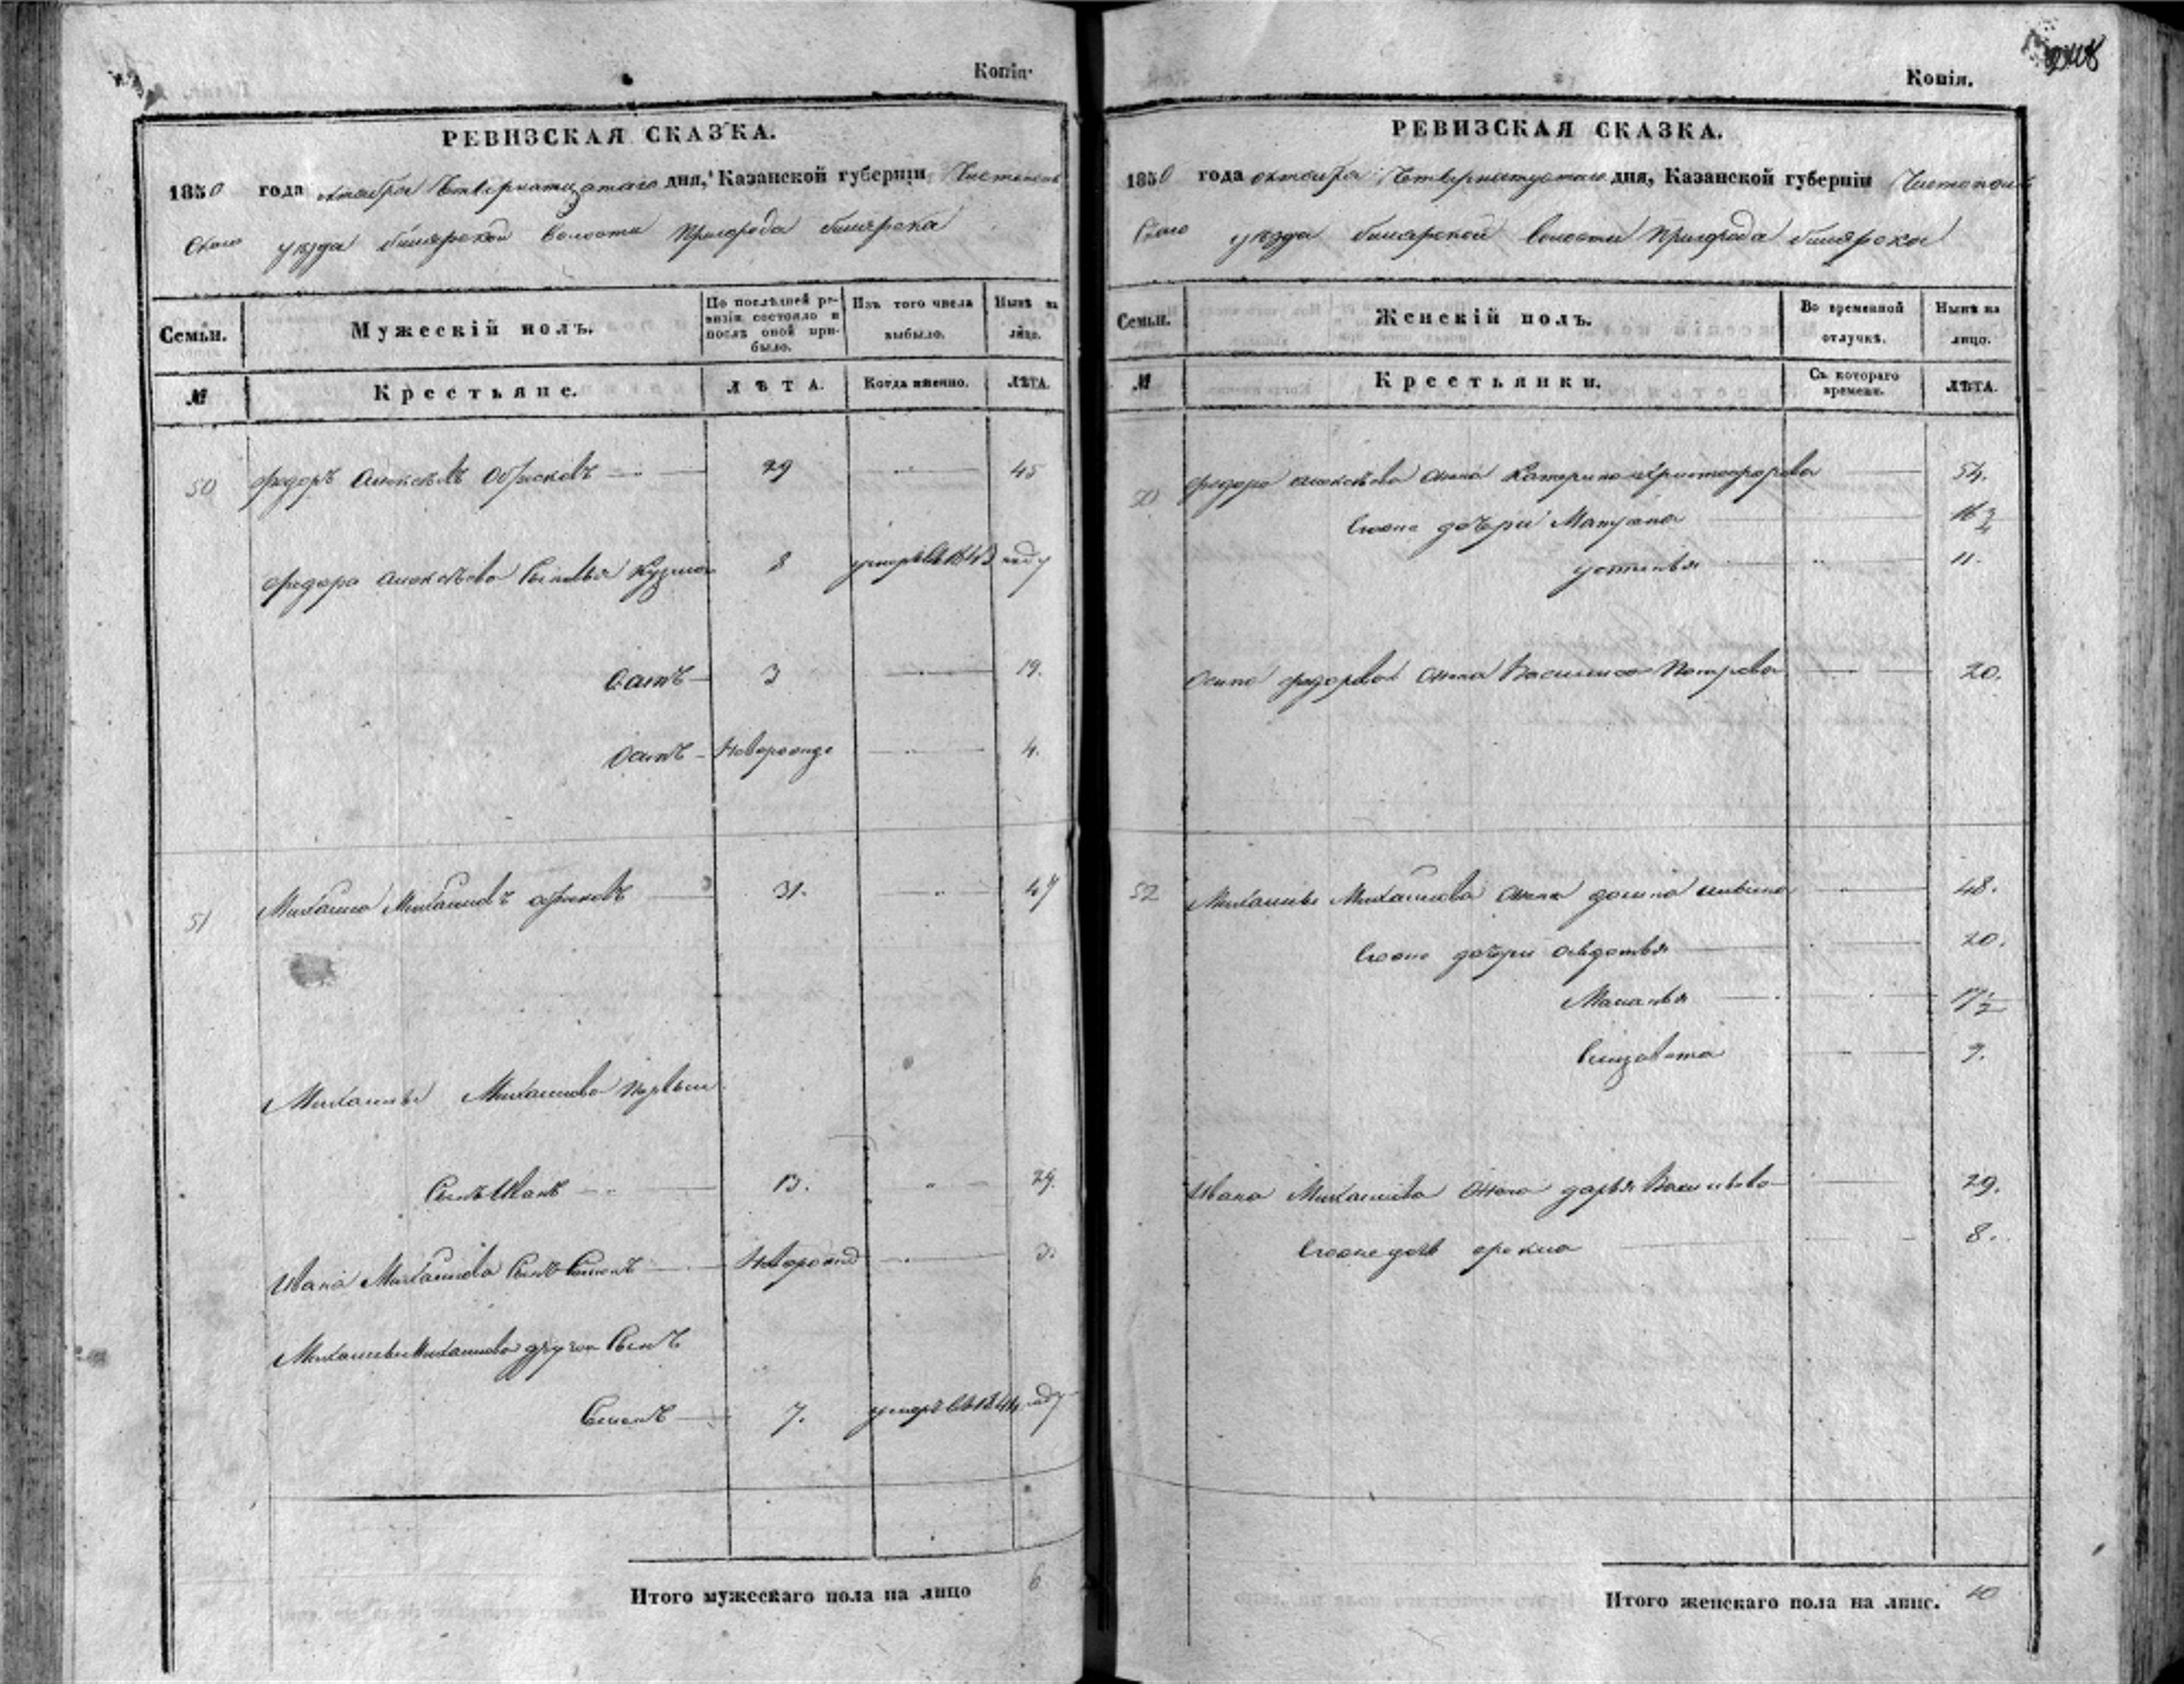 Копія.
РЕВИЗСКАЯ СКАЗКА.
1850 года октября Четвернатцатаго дня, Казанской губерніи Чистополь
скаго уезда билярской волости Пригорода билярска
Семьи.
Мужескій полъ.
По послѣдней ре-
визіи состояло и
послѣ оной при-
было.
Изъ того числа
выбыло.
Нынѣ на
лицо.
№
Крестьяне.
ЛѢТА.
Когда именно.
ЛѢТА.
50 Федоръ Алексѣевъ 29 45
Федора Алексѣева Сыновья Кузма 8 умеръ въ 1843 году
Осипъ 3 19.
Осипъ Новорожде 4.
51 Михаило Михайловъ 31. 47
Михайлы Михайлова первый
Сынъ Иванъ 13. 29.
Ивана Михайлова Сынъ Семенъ Новорожд 3.
Михайлы Михайлова другой Сынъ
Семенъ 7. умеръ въ 1844 году
Итого мужескаго пола на лицо 6
Копія.
РЕВИЗСКАЯ СКАЗКА.
1850 года октября Четвернатцатаго дня, Казанской губерніи Чистополь
Скаго уезда билярской волости Пригорода билярска
Семьи.
Женскій полъ.
Во временной
отлучкѣ.
Нынѣ на
лицо.
№
Крестьянки.
Съ котораго
времени.
ЛѢТА.
50 Федора Алексѣева жена Катерина Христофорова 54.
Его же дочери Матрена 16
Устинья 11.
Осипа Федорова жена Василиса 20.
52 Михайлы Михайлова жена 48.
Его же дочери Авдотья 20.
Маланья 17 1/2
Елизавета 9.
Ивана Михайлова жена Дарья Васильева 29.
Его же дочь 8.
Итого женскаго пола на лицо. 10